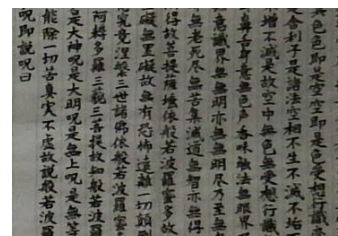 異色色即是空空即是色受想行識亦
是舍利子是諸法空相不生不滅不垢
不増不減是故空中無色無受想行識
鼻舌身意無色声香味触法無眼界
意識界無無明亦無無明尽乃至無
無老死尽無苦集滅道無智亦無得
得故菩提薩埵依般若波羅蜜多故
礙無罣礙故無有恐怖遠離一切顛倒
究竟涅槃三世諸佛依般若波羅蜜
阿耨多羅三藐三菩提故知般若波羅
是大神呪是大明呪是無上呪是無等
能除一切苦真実不虚故説般若波羅
呪即説呪曰